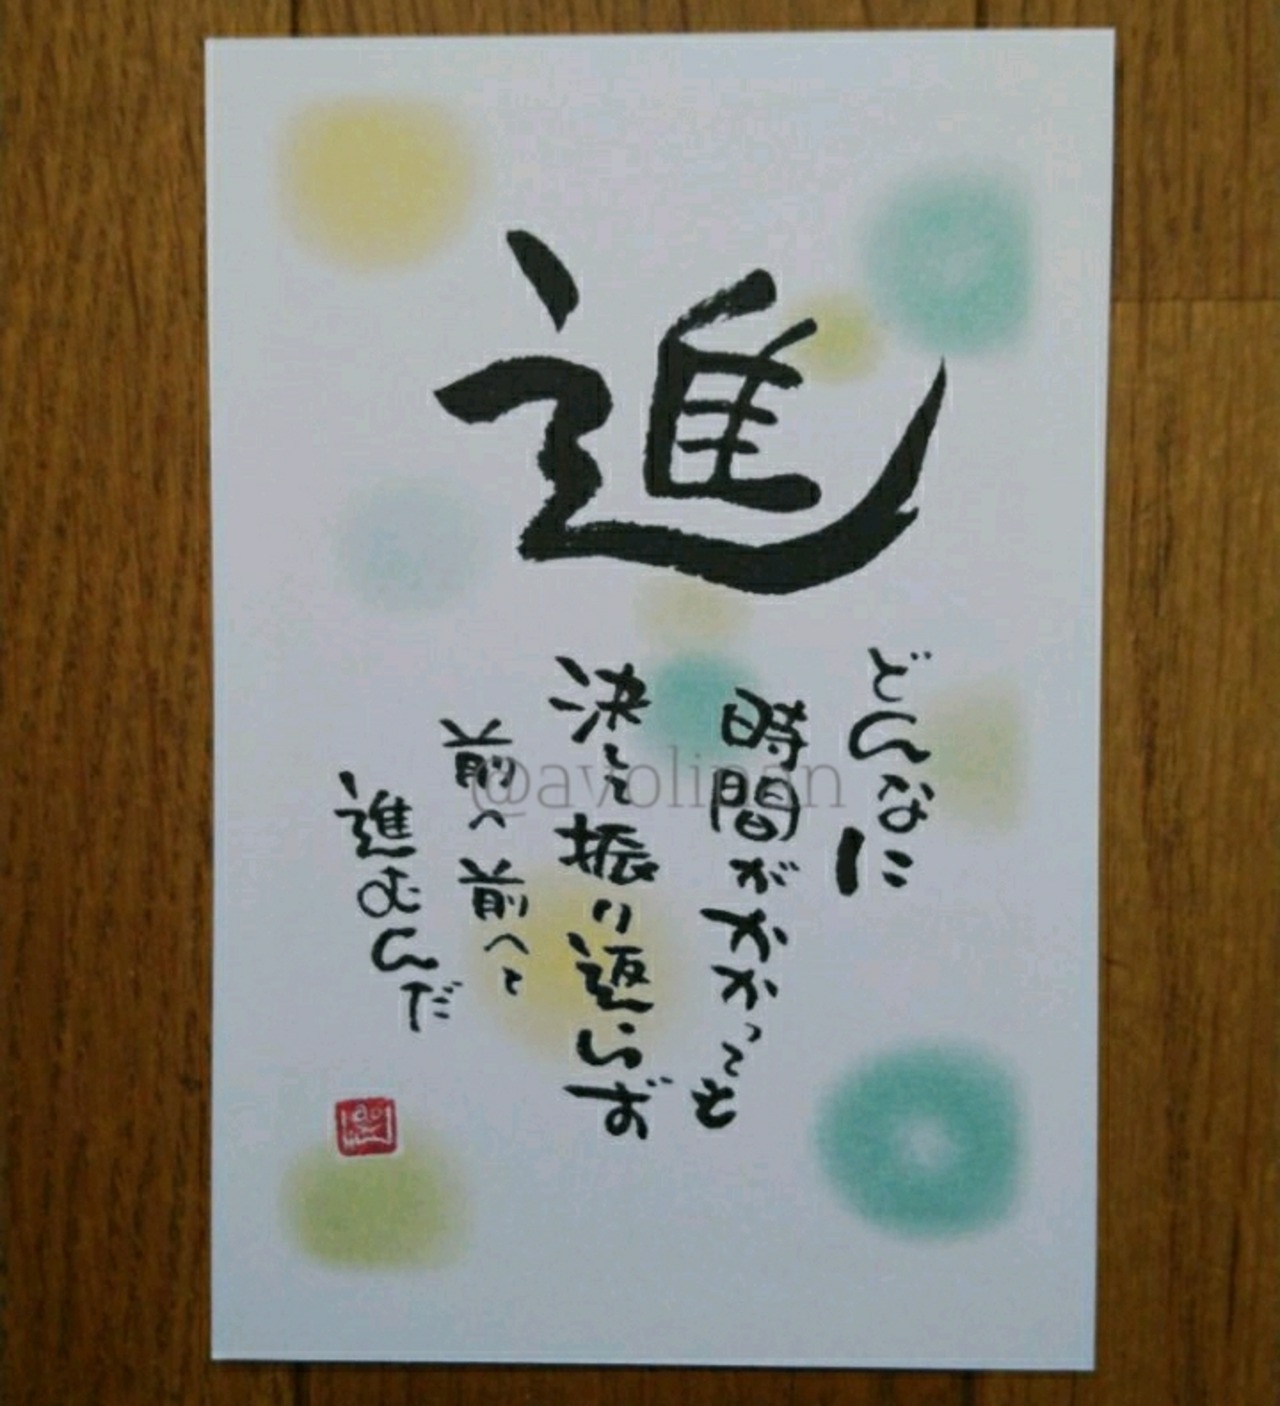 進
どんなに
時間がかかっても
決して振り返らず
前へ前へと
進むんだ
@avolinan